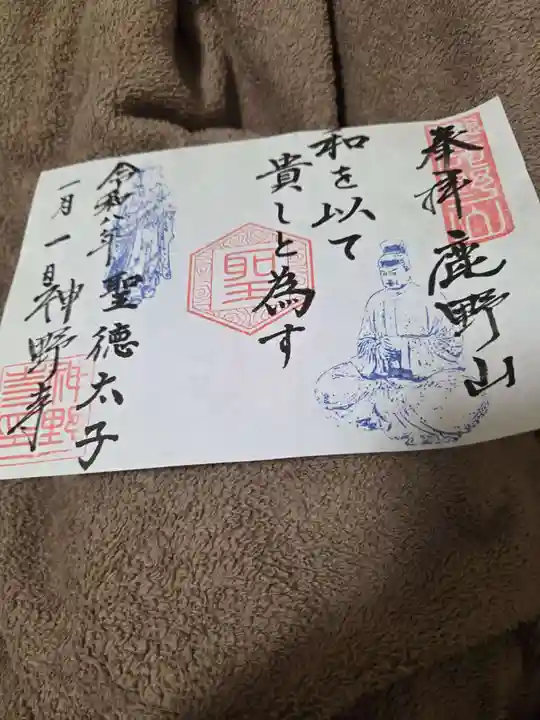 奉拝 鹿野山
和を以て
貴しと為す
聖
聖徳太子
令和八年
一月一日
神野寺